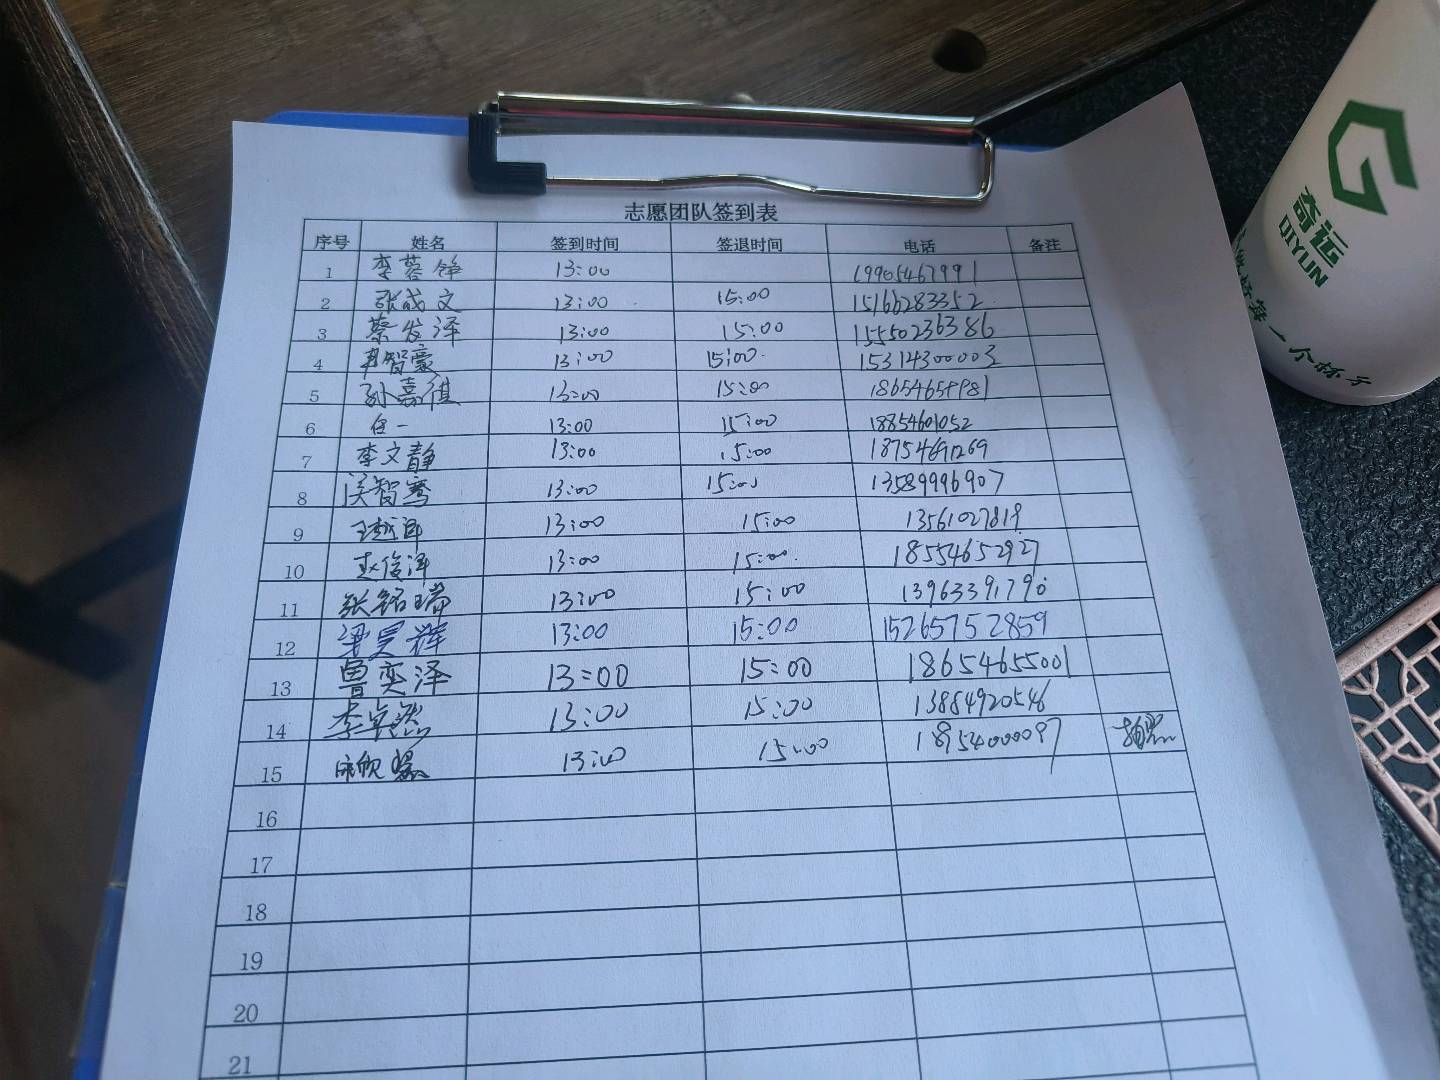 志愿团队签到表
序号 姓名 签到时间 签退时间 电话 备注
1 李蓉铮 13:00 19905467991
2 张成文 13:00 15:00 15166283352
3 蔡发泽 13:00 15:00 15550236386
4 智豪 13:00 15:00 15314300003
5 孙嘉祺 13:00 15:00
6 任一 13:00 15:00 18854601052
7 李文静 13:00 15:00
8 智骞 13:00 15:00 13589996907
9 13:00 15:00 13561027819
10 赵俊泽 13:00 15:00 18554652927
11 张铭瑞 13:00 15:00 13963391790
12 梁昊辉 13:00 15:00 15265752859
13 鲁奕泽 13:00 15:00 18654655001
14 李奕然 13:00 15:00 13884920546
15 13:00 15:00 18954000097 拍照
16
17
18
19
20
21
奇运
QIYUN
一个杯子